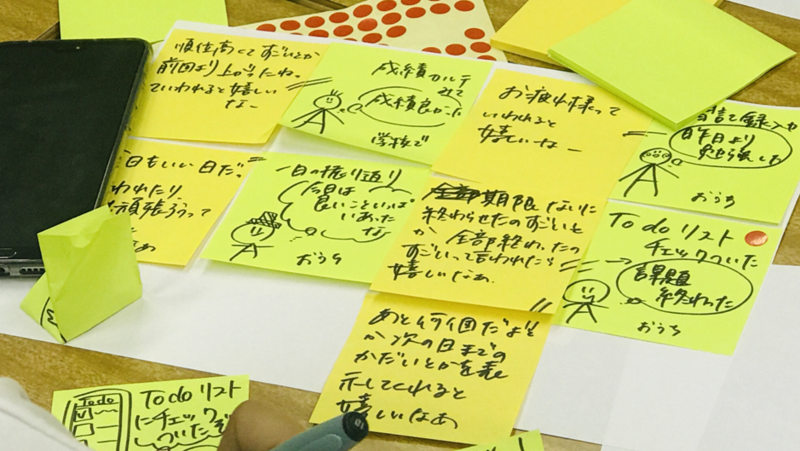 順位高くてすごいとか
前回より上がったね。
っていわれると嬉しい
なー
成績カルテ
みて
成績良かった
学校で
お疲れ様って
いわれると
嬉しいなー
昨日より
勉強した
おうち
日もいい日だ。
われたり
頑張ろうって
なぁ
一日の振り返り
今日は
良いこといっぱ
いあった
な
おうち
期限ないに
終わらせたのすごいと
か 全部終わったの
すごいって言われたら
嬉しいなぁ
Todoリスト
チェックついた
課題
終わった
おうち
あと何個だよと
か次の日までの
かだいとかを表
示してくれると
嬉しいなぁ
Todo
Todoリスト
にチェック
ついたぞ